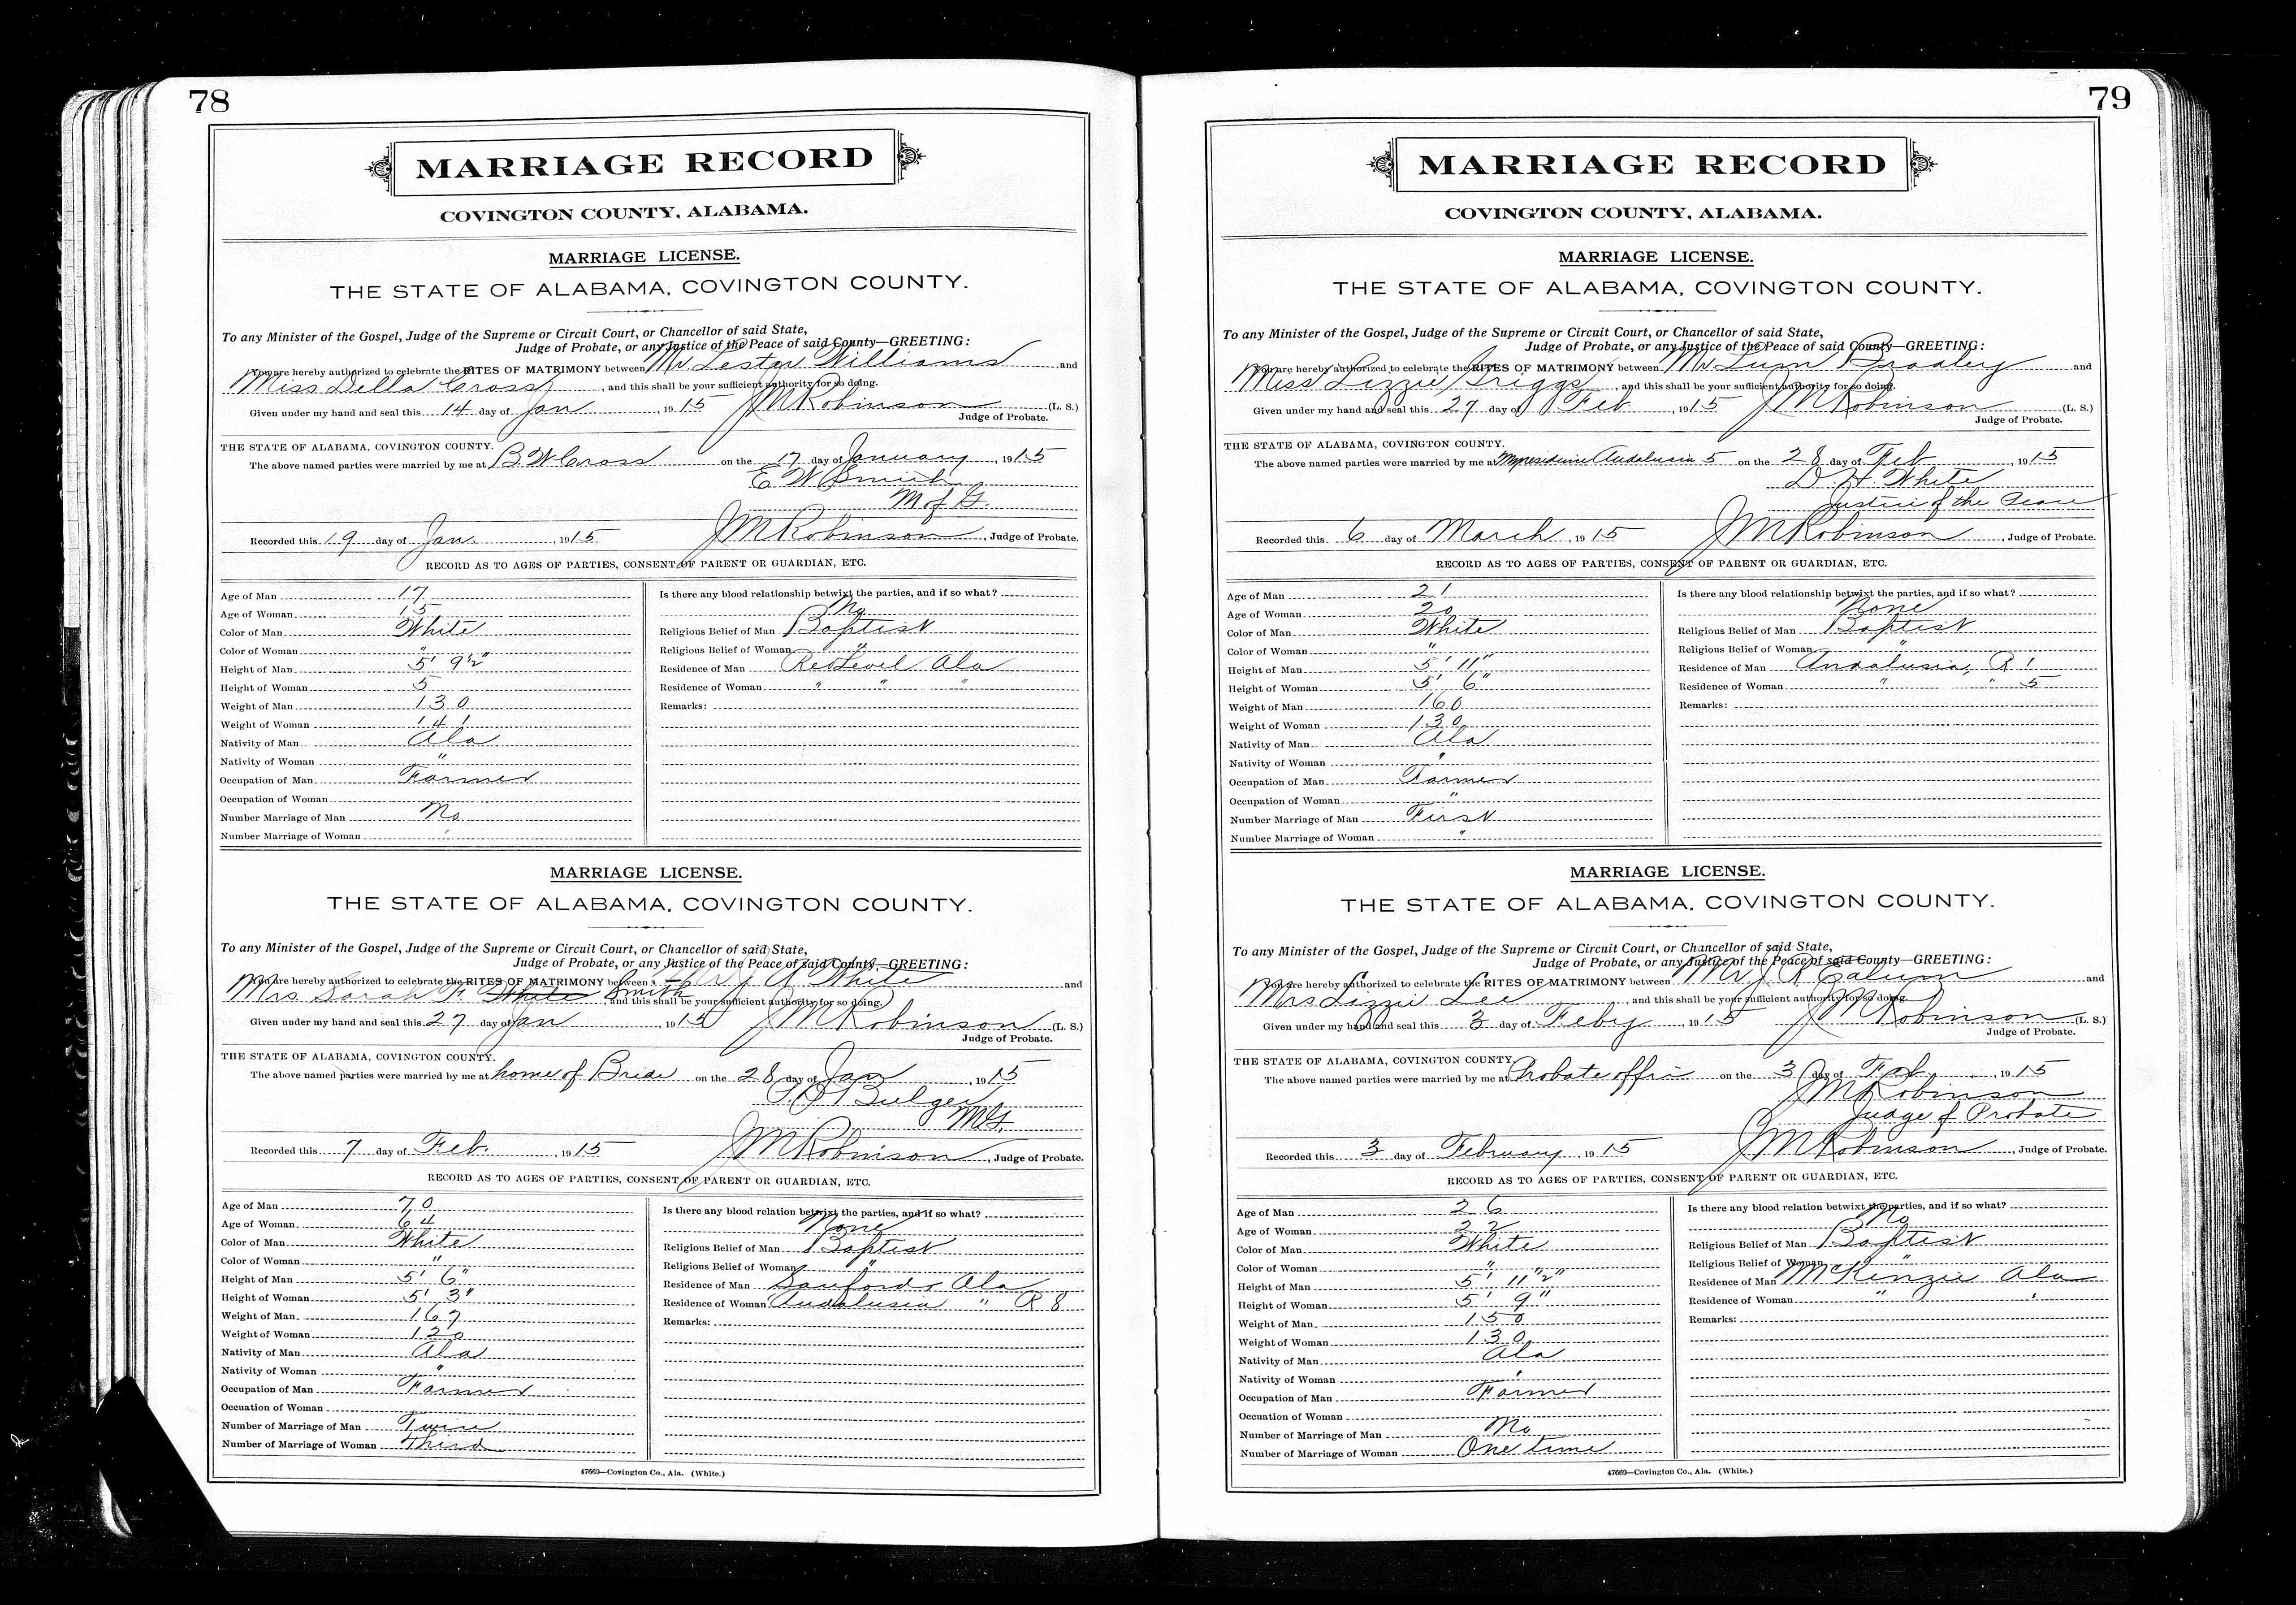 78
MARRIAGE RECORD
COVINGTON COUNTY, ALABAMA.
MARRIAGE LICENSE.
THE STATE OF ALABAMA, COVINGTON COUNTY.
To any Minister of the Gospel, Judge of the Supreme or Circuit Court, or Chancellor of said State,
Judge of Probate, or any Justice of the Peace of said County—GREETING:
You are hereby authorized to celebrate the RITES OF MATRIMONY between Mr. Lester Williams and
Miss Della Cross, and this shall be your sufficient authority for so doing.
Given under my hand and seal this 14 day of Jan, 1915 J M Robinson (L. S.)
Judge of Probate.
THE STATE OF ALABAMA, COVINGTON COUNTY.
The above named parties were married by me at B W Cross on the 17 day of January, 1915
E W Smith
M of G.
Recorded this 19 day of Jan., 1915 J M Robinson, Judge of Probate.
RECORD AS TO AGES OF PARTIES, CONSENT OF PARENT OR GUARDIAN, ETC.
Age of Man 17
Age of Woman 15
Color of Man White
Color of Woman "
Height of Man 5' 9½"
Height of Woman 5
Weight of Man 130
Weight of Woman 141
Nativity of Man Ala
Nativity of Woman "
Occupation of Man Farmer
Occupation of Woman
Number Marriage of Man No
Number Marriage of Woman "
Is there any blood relationship betwixt the parties, and if so what?
No
Religious Belief of Man Baptist
Religious Belief of Woman "
Residence of Man Red Level Ala
Residence of Woman " " "
Remarks:
MARRIAGE LICENSE.
THE STATE OF ALABAMA, COVINGTON COUNTY.
To any Minister of the Gospel, Judge of the Supreme or Circuit Court, or Chancellor of said State,
Judge of Probate, or any Justice of the Peace of said County—GREETING:
You are hereby authorized to celebrate the RITES OF MATRIMONY between Mr J A White and
Mrs Sarah F White Smith, and this shall be your sufficient authority for so doing.
Given under my hand and seal this 27 day of Jan, 1915 J M Robinson (L. S.)
Judge of Probate.
THE STATE OF ALABAMA, COVINGTON COUNTY.
The above named parties were married by me at home of Bride on the 28 day of Jan, 1915
Bulger
MG.
Recorded this 7 day of Feb., 1915 J M Robinson, Judge of Probate.
RECORD AS TO AGES OF PARTIES, CONSENT OF PARENT OR GUARDIAN, ETC.
Age of Man 70
Age of Woman 64
Color of Man White
Color of Woman "
Height of Man 5' 6"
Height of Woman 5' 3"
Weight of Man 167
Weight of Woman 120
Nativity of Man Ala
Nativity of Woman "
Occupation of Man Farmer
Occuation of Woman
Number of Marriage of Man Twice
Number of Marriage of Woman Third
Is there any blood relation betwixt the parties, and if so what?
None
Religious Belief of Man Baptist
Religious Belief of Woman "
Residence of Man Sanford, Ala
Residence of Woman Andalusia " R 8
Remarks:
47669—Covington Co., Ala. (White.)
79
MARRIAGE RECORD
COVINGTON COUNTY, ALABAMA.
MARRIAGE LICENSE.
THE STATE OF ALABAMA, COVINGTON COUNTY.
To any Minister of the Gospel, Judge of the Supreme or Circuit Court, or Chancellor of said State,
Judge of Probate, or any Justice of the Peace of said County—GREETING:
You are hereby authorized to celebrate the RITES OF MATRIMONY between Mr. Lum Bradley and
Miss Lizzie Griggs, and this shall be your sufficient authority for so doing.
Given under my hand and seal this 27 day of Feb., 1915 J M Robinson (L. S.)
Judge of Probate.
THE STATE OF ALABAMA, COVINGTON COUNTY.
The above named parties were married by me at My residence Andalusia 5 on the 28 day of Feb, 1915
D. H. White
Justice of the Peace
Recorded this 6 day of March, 1915 J M Robinson, Judge of Probate.
RECORD AS TO AGES OF PARTIES, CONSENT OF PARENT OR GUARDIAN, ETC.
Age of Man 21
Age of Woman 20
Color of Man White
Color of Woman "
Height of Man 5' 11"
Height of Woman 5' 6"
Weight of Man 160
Weight of Woman 130
Nativity of Man Ala
Nativity of Woman "
Occupation of Man Farmer
Occupation of Woman "
Number Marriage of Man First
Number Marriage of Woman "
Is there any blood relationship betwixt the parties, and if so what?
None
Religious Belief of Man Baptist
Religious Belief of Woman "
Residence of Man Andalusia, R 1
Residence of Woman " " 5
Remarks:
MARRIAGE LICENSE.
THE STATE OF ALABAMA, COVINGTON COUNTY.
To any Minister of the Gospel, Judge of the Supreme or Circuit Court, or Chancellor of said State,
Judge of Probate, or any Justice of the Peace of said County—GREETING:
You are hereby authorized to celebrate the RITES OF MATRIMONY between Mr J R and
Mrs Lizzie Lee, and this shall be your sufficient authority for so doing.
Given under my hand and seal this 3 day of Feby, 1915 J M Robinson (L. S.)
Judge of Probate.
THE STATE OF ALABAMA, COVINGTON COUNTY.
The above named parties were married by me at Probate offi on the 3 day of Feb., 1915
J M Robinson
Judge of Probate
Recorded this 3 day of February, 1915 J M Robinson, Judge of Probate.
RECORD AS TO AGES OF PARTIES, CONSENT OF PARENT OR GUARDIAN, ETC.
Age of Man 26
Age of Woman 22
Color of Man White
Color of Woman "
Height of Man 5' 11½"
Height of Woman 5' 9"
Weight of Man 150
Weight of Woman 130
Nativity of Man Ala
Nativity of Woman "
Occupation of Man Farmer
Occuation of Woman
Number of Marriage of Man No
Number of Marriage of Woman One time
Is there any blood relation betwixt the parties, and if so what?
No
Religious Belief of Man Baptist
Religious Belief of Woman "
Residence of Man McKenzie Ala
Residence of Woman " "
Remarks:
47669—Covington Co., Ala. (White.)